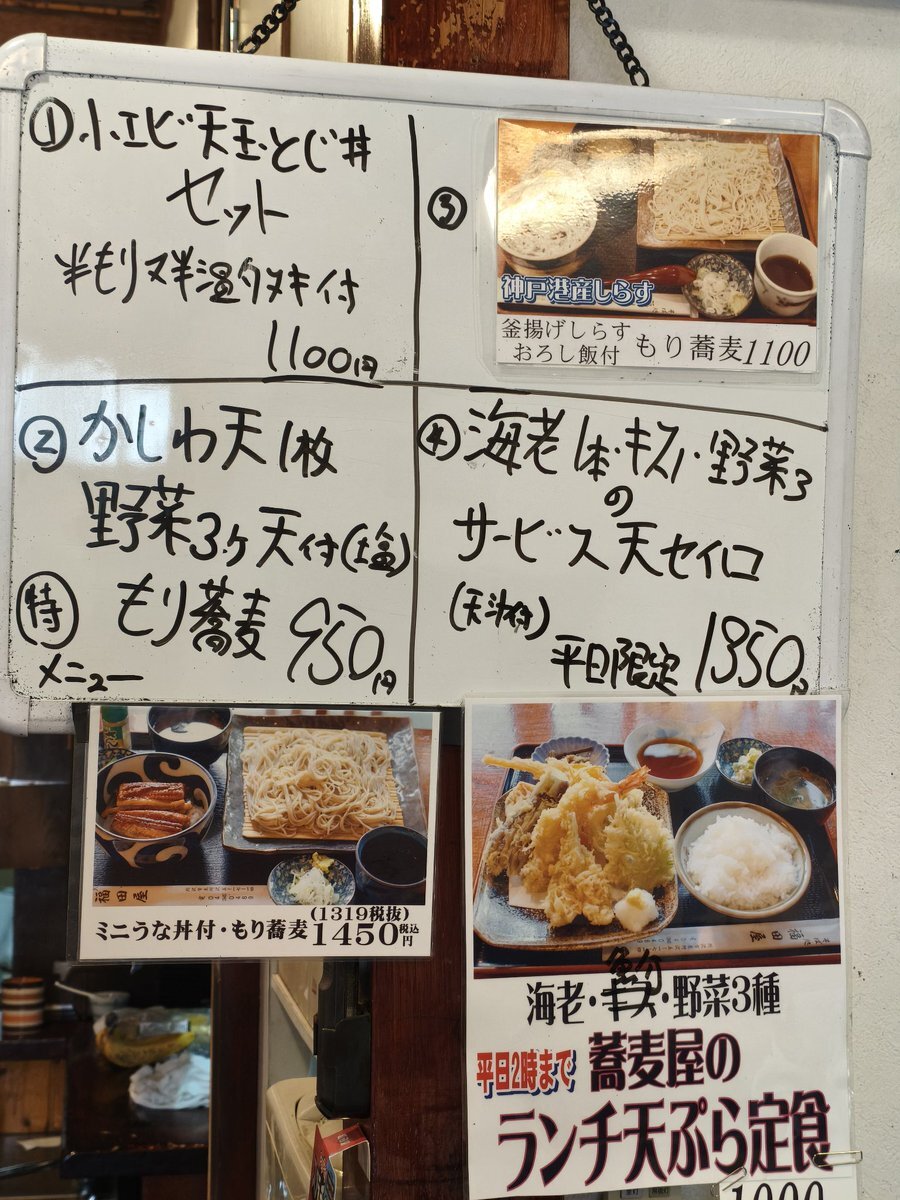 ① 小エビ天玉とじ丼
セット
半もり又半温タヌキ付
1100円
② かしわ天1枚
野菜3ヶ天付(塩)
特 もり蕎麦 950円
メニュー
③
神戸港産しらす
釜揚げしらす
おろし飯付 もり蕎麦1100
④ 海老1本・キス1・野菜3
の
サービス天セイロ
(天汁付)
平日限定 1350円
福田屋
ミニうな丼付・もり蕎麦(1319税抜)1450税込円
福田屋
海老・キス・野菜3種
平日2時まで 蕎麦屋の
ランチ天ぷら定食
1000